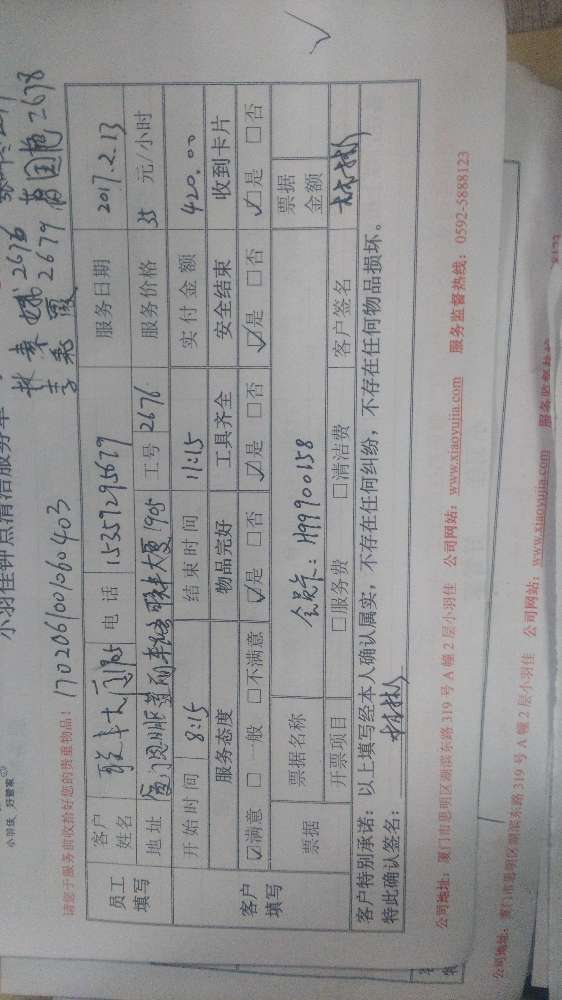 小羽佳 好管家
小羽佳钟点清洁服务单
请您于服务前收拾好您的贵重物品! 1702061001060403
2676
2679 2678
员工填写 客户姓名 电话 15357295679 服务日期 2017.2.13
地址 工号 2676 服务价格 35 元/小时
开始时间 8:15 结束时间 11:15 实付金额 420.00
客户填写 服务态度 物品完好 工具齐全 安全结束 收到卡片
☑满意 □一般 □不满意 ☑是 □否 ☑是 □否 ☑是 □否 ☑是 □否
票据 票据名称 会员卡:H99900158 票据金额
开票项目 □服务费 □清洁费 客户签名
客户特别承诺:以上填写经本人确认属实,不存在任何纠纷,不存在任何物品损坏。
特此确认签名:
公司地址:厦门市思明区湖滨东路 319 号 A 幢 2 层小羽佳 公司网站:www.xiaoyujia.com 服务监督热线:0592-5888123
公司地址:厦门市思明区湖滨东路 319 号 A 幢 2 层小羽佳 公司网站:www.xiaoyujia.com 服务监督热线